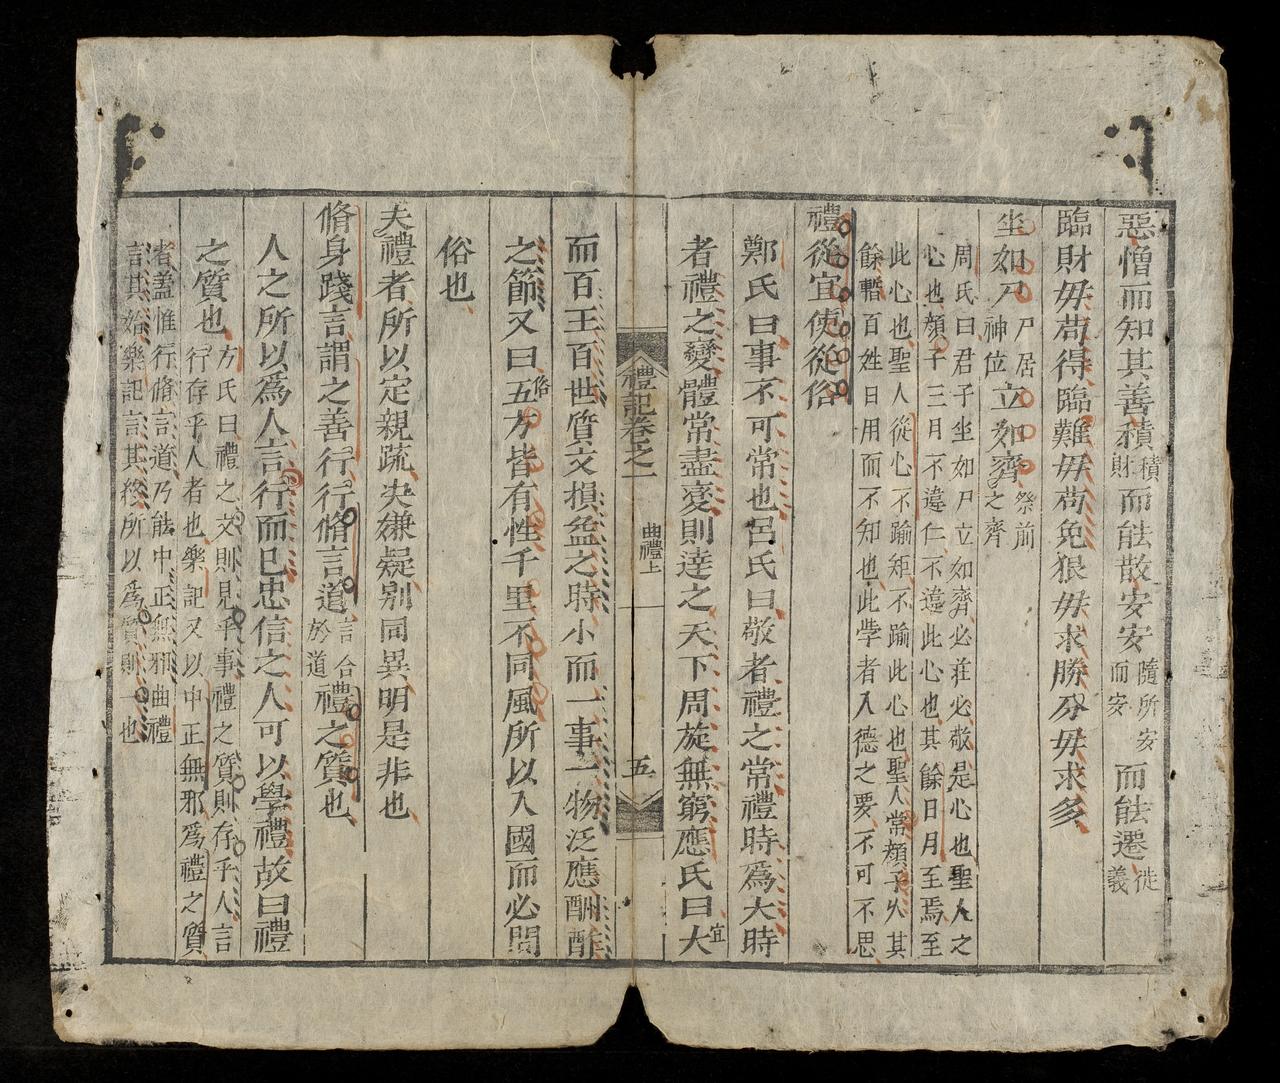 惡憎而知其善積積財而能散安安隨所安而安而能遷徙義
臨財毋苟得臨難毋苟免狠毋求勝分毋求多
坐如尸尸居神位立如齊祭前之齊
周氏曰君子坐如尸立如齊必莊必敬是心也聖人之
心也顏子三月不違仁不違此心也其餘日月至焉至
此心也聖人從心不踰矩不踰此心也聖人常顏子久其
餘暫百姓日用而不知也此學者入德之要不可不思
禮從宜使從俗
鄭氏曰事不可常也呂氏曰敬者禮之常禮時爲大時
者禮之變體常盡變則達之天下周旋無窮應氏曰大宜
禮記卷之一 曲禮上 五
而百王百世質文損益之時小而一事一物泛應酬酢
之節又曰五俗方皆有性千里不同風所以入國而必問
俗也
夫禮者所以定親疏決嫌疑別同異明是非也
脩身踐言謂之善行行脩言道言合於道禮之質也
人之所以爲人言行而已忠信之人可以學禮故曰禮
之質也方氏曰禮之文則見乎事禮之質則存乎人言
行存乎人者也樂記又以中正無邪爲禮之質
者蓋惟行脩言道乃能中正無邪曲禮
言其始樂記言其終所以爲質則一也